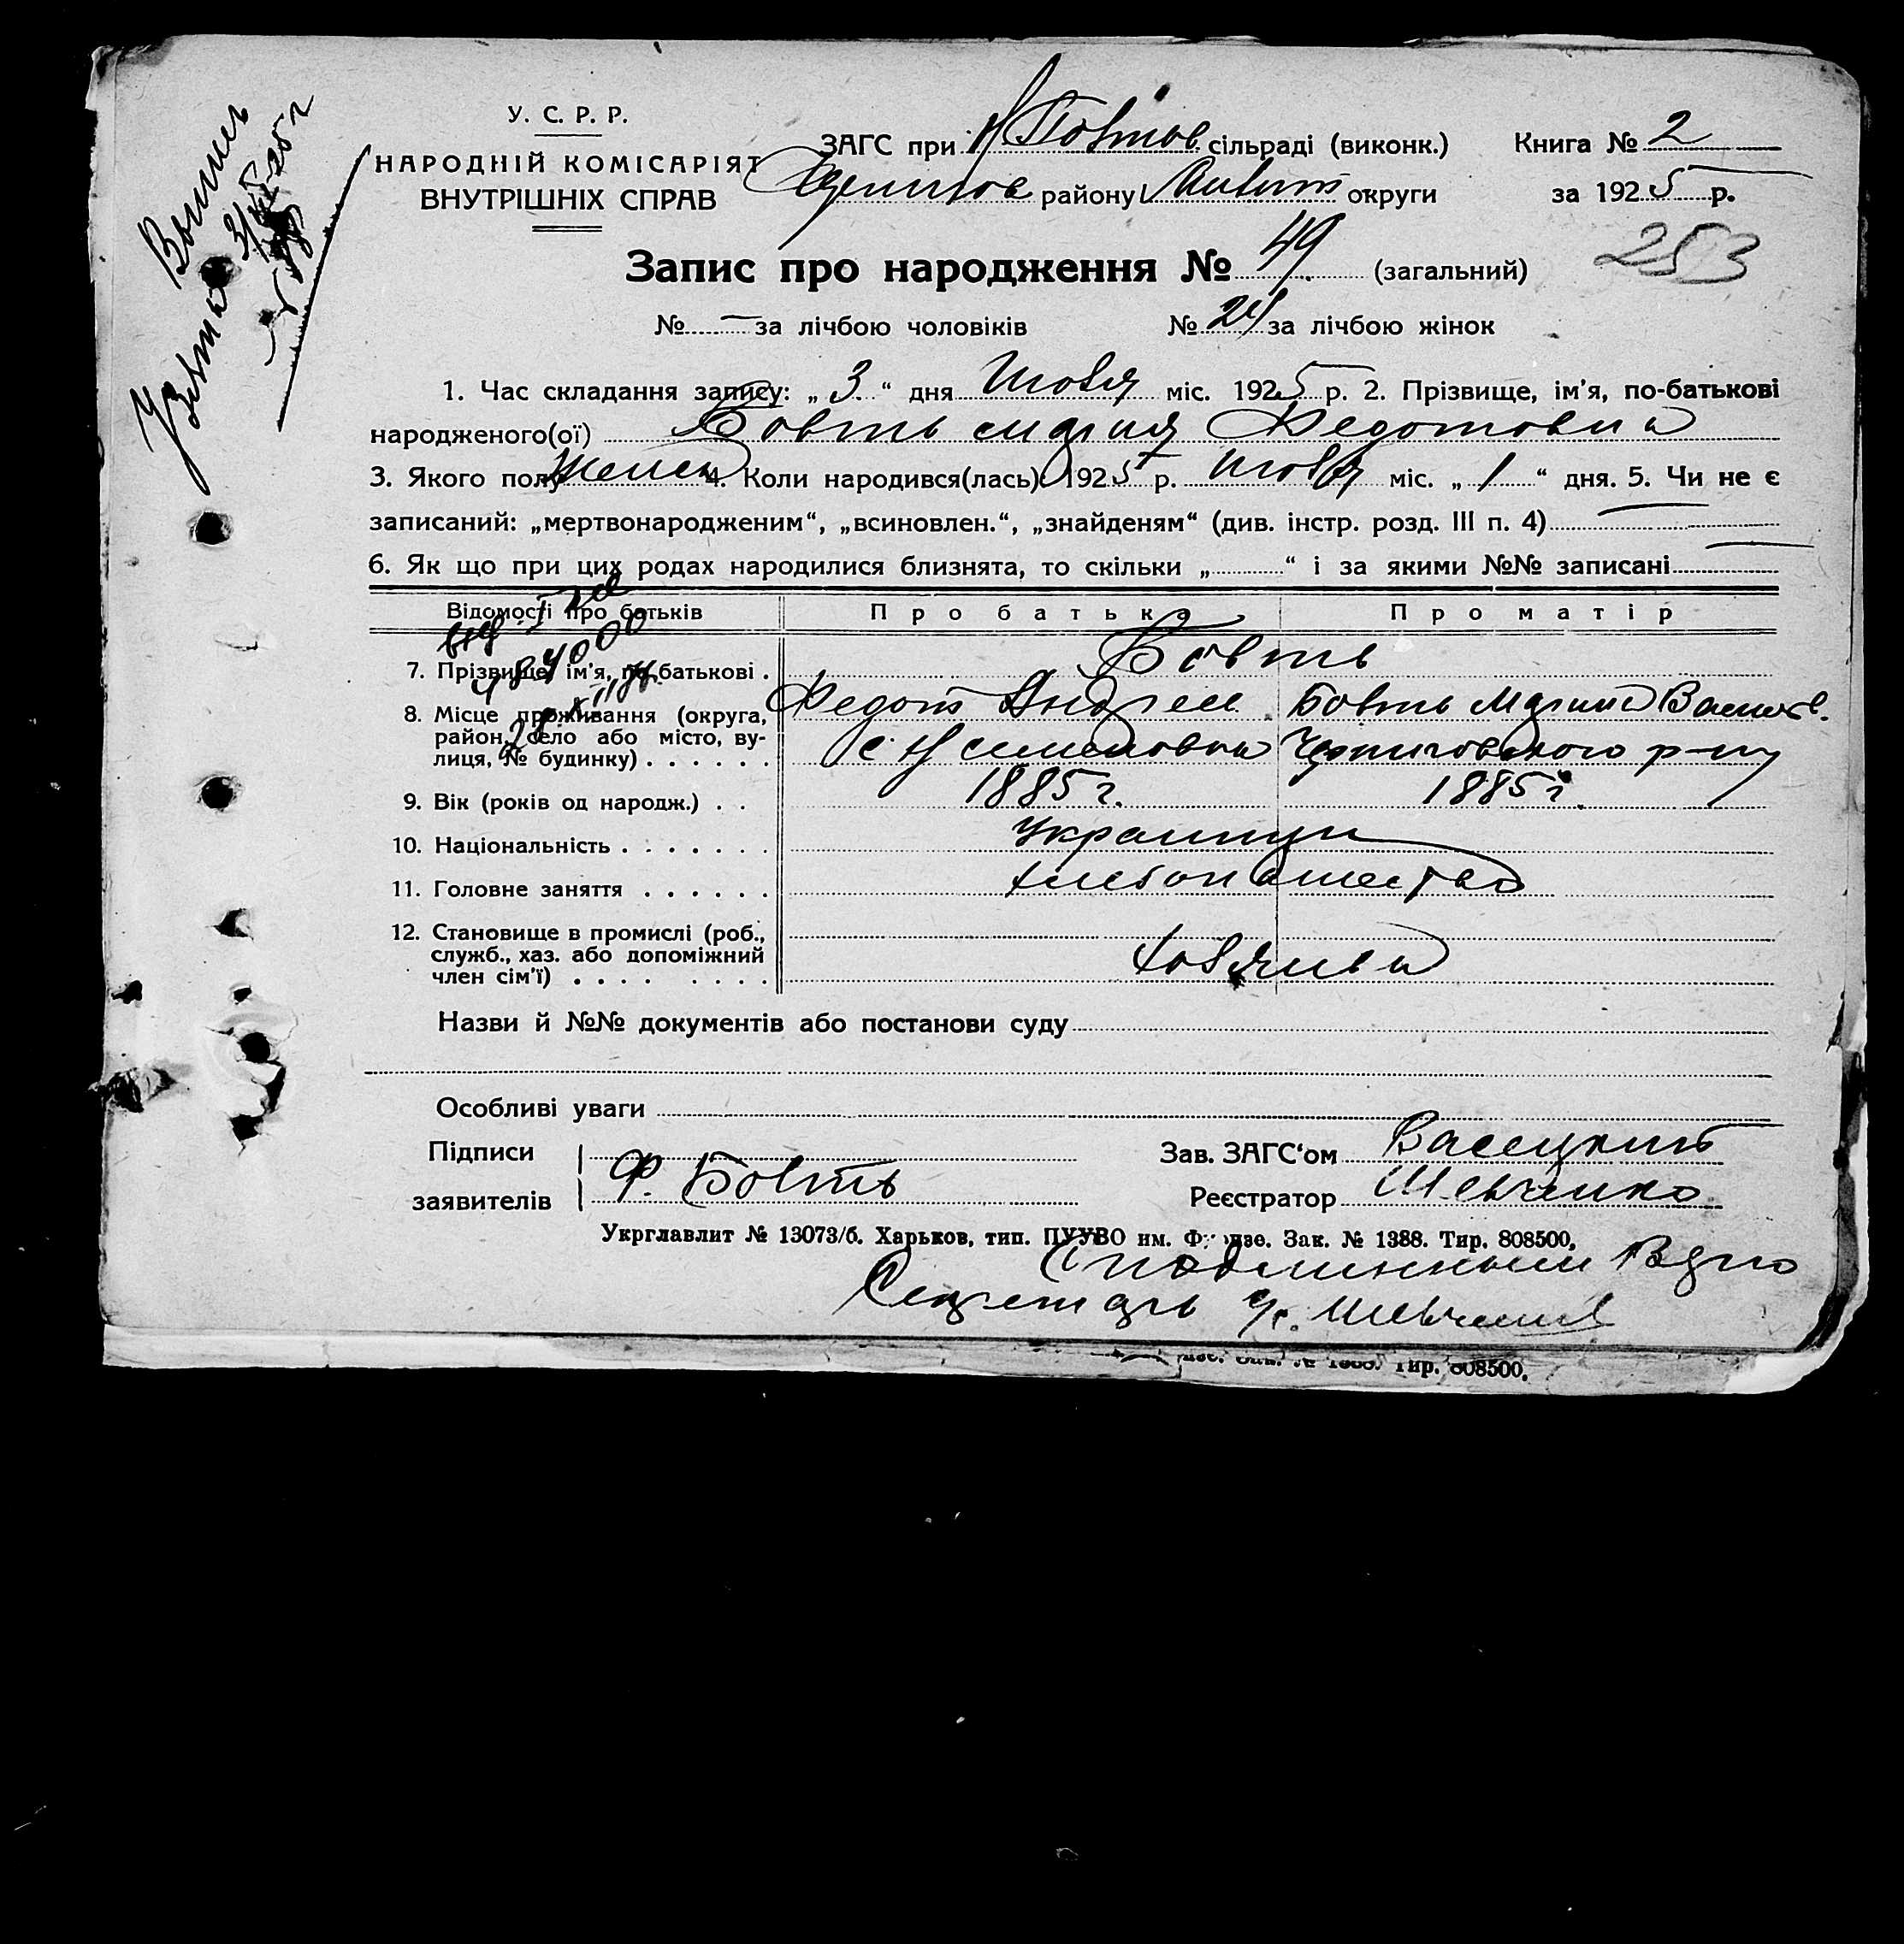 У. С. Р. Р.
НАРОДНІЙ КОМІСАРІЯТ
ВНУТРІШНІХ СПРАВ
ЗАГС при сільраді (виконк.)
району округи
Книга № 2
за 1925 р.
Запис про народження № 49 (загальний)
253
№ — за лічбою чоловіків № 24 за лічбою жінок
1. Час складання запису: „ 3 “ дня Июля міс. 1925 р. 2. Прізвище, ім’я, по-батькові
народженого(ої) Бовть Мария Федотовна
3. Якого полу Женск 4. Коли народився(лась): 1925 р. Июля міс. „ 1 “ дня. 5. Чи не є
записаний: „мертвонародженим“, „всиновлен.“, „знайденям“ (див. інстр. розд. III п. 4) —
6. Як що при цих родах народилися близнята, то скільки „ “ і за якими №№ записані —
Відомості про батьків Про батька Про матір
7. Прізвище, ім’я, по-батькові . Бовть
Федот Андреев. Бовть Марина Васильев.
8. Місце проживання (округа,
район, село або місто, ву-
лиця, № будинку) . . . . . . с. Н Семеновка Черниговского р-ну
9. Вік (років од народж.) . . 1885 г. 1885 г.
10. Національність . . . . . . . Украинцы
11. Головне заняття . . . . . . хлебопашество
12. Становище в промислі (роб.,
служб., хаз. або допоміжний
член сім’ї) . . . . . . . . хозяева
Назви й №№ документів або постанови суду
Особливі уваги
Підписи
заявителів Ф. Бовть
Зав. ЗАГС‘ом Васецкий
Реєстратор Шевченко
Укрглавлит № 13073/б. Харьков, тип. ПУУВО им. Фрунзе. Зак. № 1388. Тир. 808500.
С подлинным верно
Секретарь Шевченко
Тир. 808500.